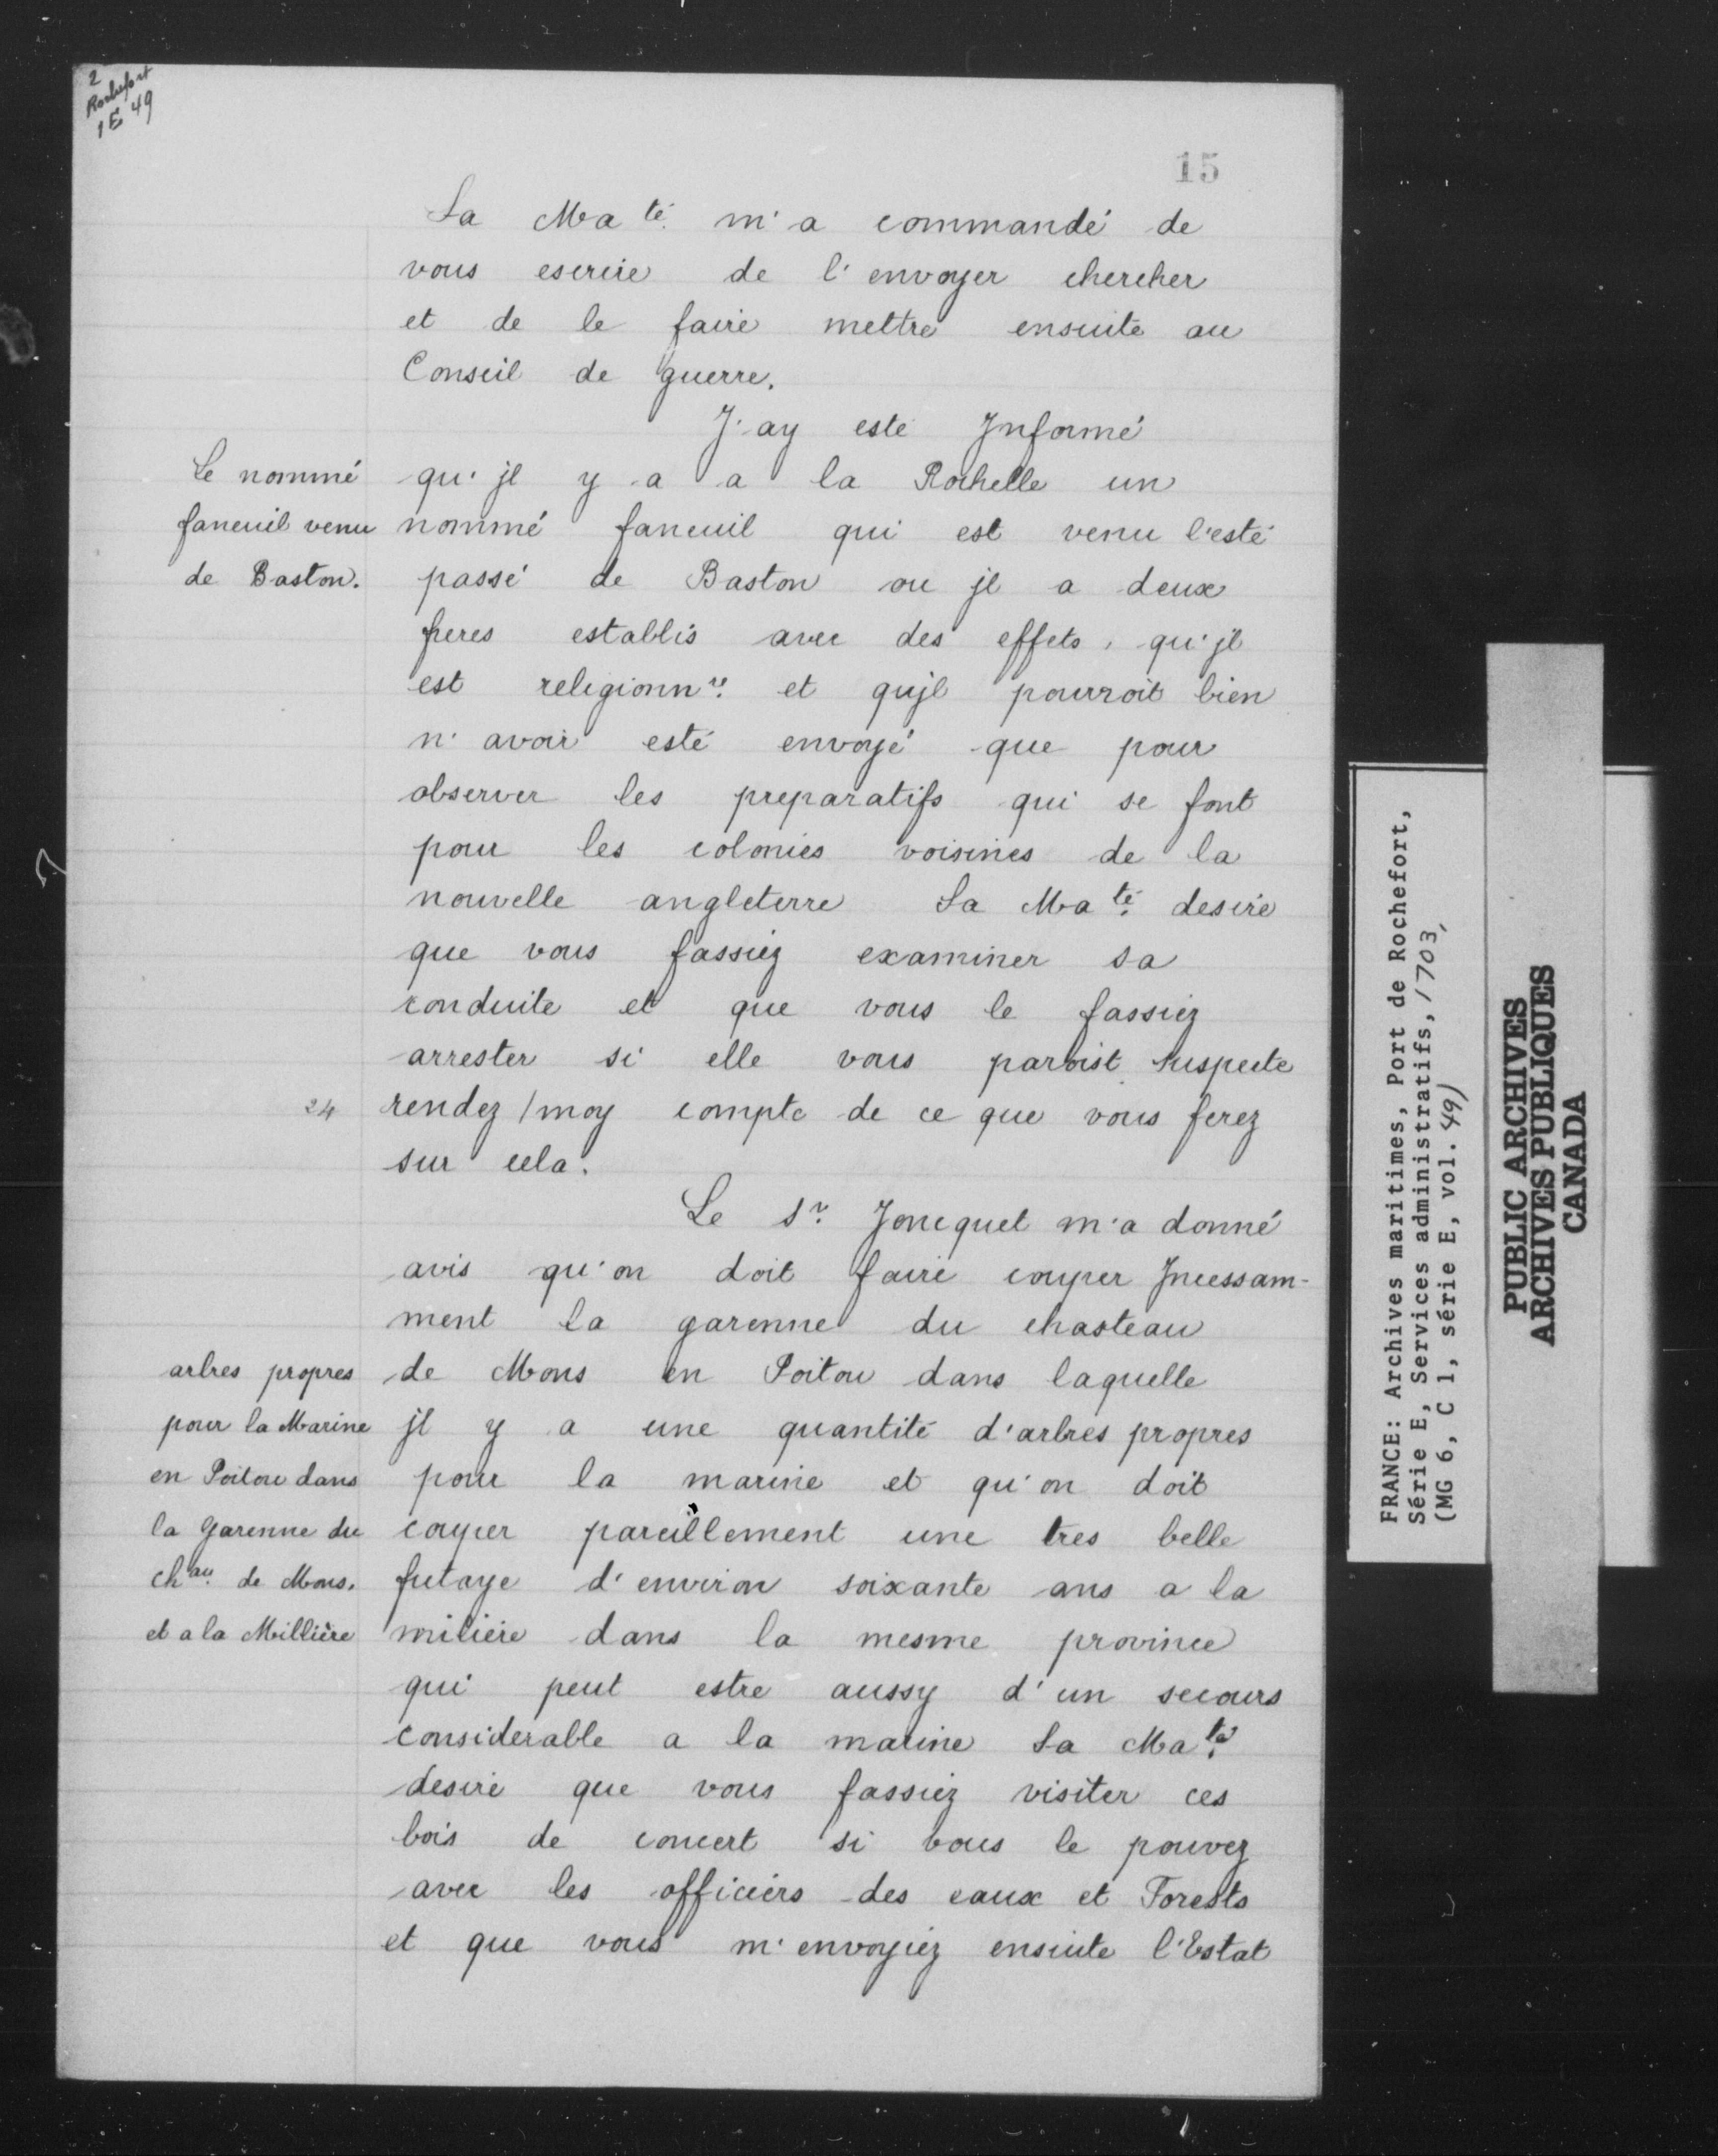 2
Rochefort
1E 49
15
Sa Ma té m'a commandé de
vous escrire de l'envoyer chercher
et de le faire mettre ensuite au
Conseil de guerre.
J'ay esté Informé
Le nommé
faneuil venu
de Baston.
qu'jl y a a la Rochelle un
nommé faneuil qui est venu l'esté
passé de Baston ou jl a deux
freres establis avec des effets, qu'jl
est religionn re et qujl pourroit bien
n'avoir esté envoyé que pour
observer les preparatifs qui se font
pour les colonies voisines de la
nouvelle angleterre Sa Ma té desire
que vous fassiez examiner sa
conduite et que vous le fassiez
arrester si elle vous paroist suspecte
24
rendez / moy compte de ce que vous ferez
sur cela.
Le Sr. Joucquet m'a donné
avis qu'on doit faire couper Jncessam-
ment la garenne du chasteau
arbres propres
pour la Marine
en Poitou dans
la garenne du
ch au de Mons.
et a la Millière
de Mons en Poitou dans laquelle
jl y a une quantité d'arbres propres
pour la marine et qu'on doit
couper pareillement une tres belle
futaye d'environ soixante ans a la
miliere dans la mesme province
qui peut estre aussy d'un secours
considerable a la marine Sa Ma té
desire que vous fassiez visiter ces
bois de concert si vous le pouvez
avec les officiers des eaux et Forests
et que vous m'envoyiez ensuite l'Estat
FRANCE: Archives maritimes, Port de Rochefort,
Série E, Services administratifs, 1703,
(MG 6, C 1, série E, vol. 49)
PUBLIC ARCHIVES
ARCHIVES PUBLIQUES
CANADA